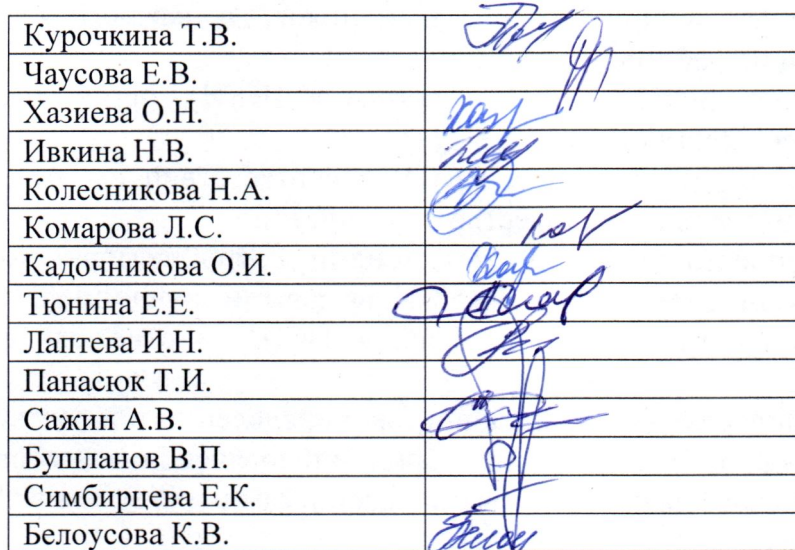 Курочкина Т.В.
Чаусова Е.В.
Хазиева О.Н.
Ивкина Н.В.
Колесникова Н.А.
Комарова Л.С.
Кадочникова О.И.
Тюнина Е.Е.
Лаптева И.Н.
Панасюк Т.И.
Сажин А.В.
Бушланов В.П.
Симбирцева Е.К.
Белоусова К.В.